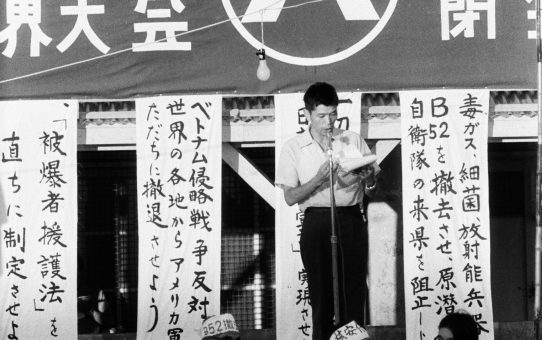 界大会
閉
毒ガス、細菌、放射能兵器
B52を撤去させ、原潜
自衛隊の来県を阻止
実現させ
ベトナム侵略戦争反対
世界の各地からアメリカ軍
ただちに撤退させよう
「被爆者援護法」を
直ちに制定させよ
B52撤